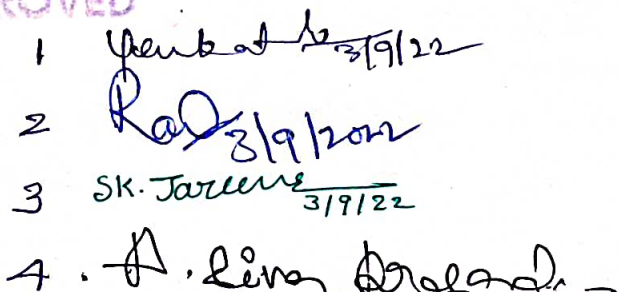 OVED
1 Venkat 3/9/22
2 3/9/2022
3 SK. Jareena 3/9/22
4. A. Siva Prasad